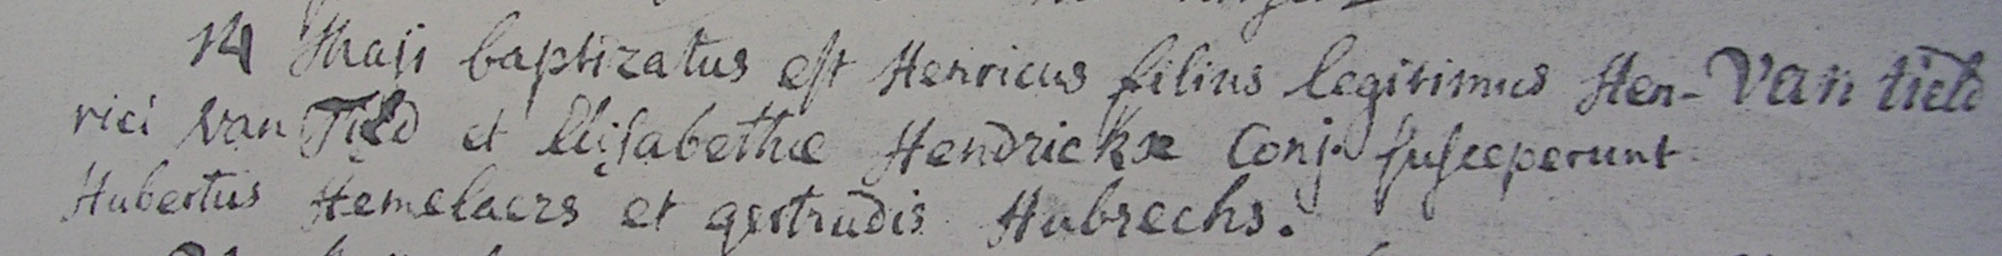 14 Maji baptizatus est Henricus filius legitimus Hen- Van tield
rici van Tield et Elisabethæ Hendrickx Conj. susceperunt
Hubertus Hemelaers et gertrudis Hubrechs.